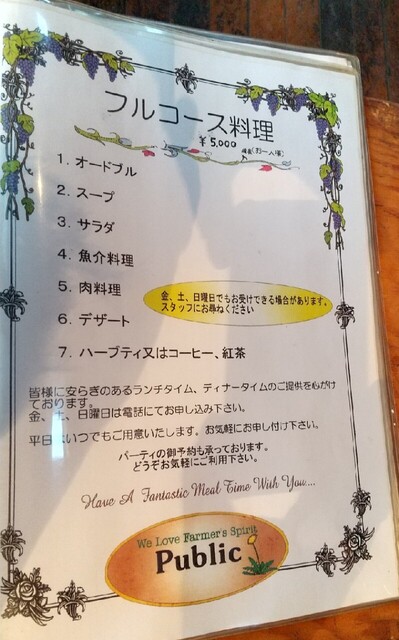 フルコース料理
¥5,000 (お一人様)
1. オードブル
2. スープ
3. サラダ
4. 魚介料理
5. 肉料理
金、土、日曜日でもお受けできる場合があります。
スタッフにお尋ねください
6. デザート
7. ハーブティ又はコーヒー、紅茶
皆様に安らぎのあるランチタイム、ディナータイムのご提供を心がけ
ております。
金、土、日曜日は電話にてお申し込み下さい。
平日はいつでもご用意いたします。お気軽にお申し付け下さい。
パーティの御予約も承っております。
どうぞお気軽にご利用下さい。
Have A Fantastic Meal Time With You....
We Love Farmer's Spirit
Public